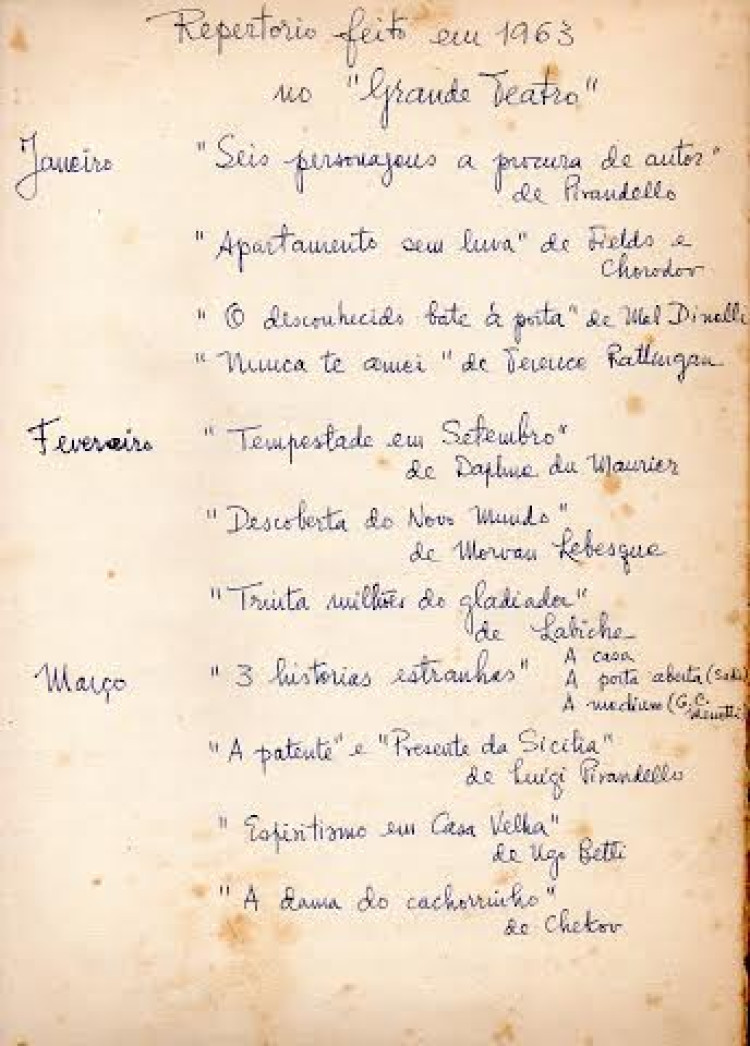 Repertorio feito em 1963
no "Grande Teatro"
Janeiro "Seis personagens a procura de autor"
de Pirandello
"Apartamento sem luva" de Fields e
Chorodov
"O desconhecido bate à porta" de Mel Dinelli
"Nunca te amei" de Terence Rattingan
Fevereiro "Tempestade em Setembro"
de Daphne du Maurier
"Descoberta do Novo Mundo"
de Morvan Lebesque
"Trinta milhões do gladiador"
de Labiche
Março "3 historias estranhas" A casa
A porta aberta (Saki)
A medium (G.C.
Menotti)
"A patente" e "Presente da Sicilia"
de Luigi Pirandello
"Espiritismo em Casa Velha"
de Ugo Betti
"A dama do cachorrinho"
de Chekov